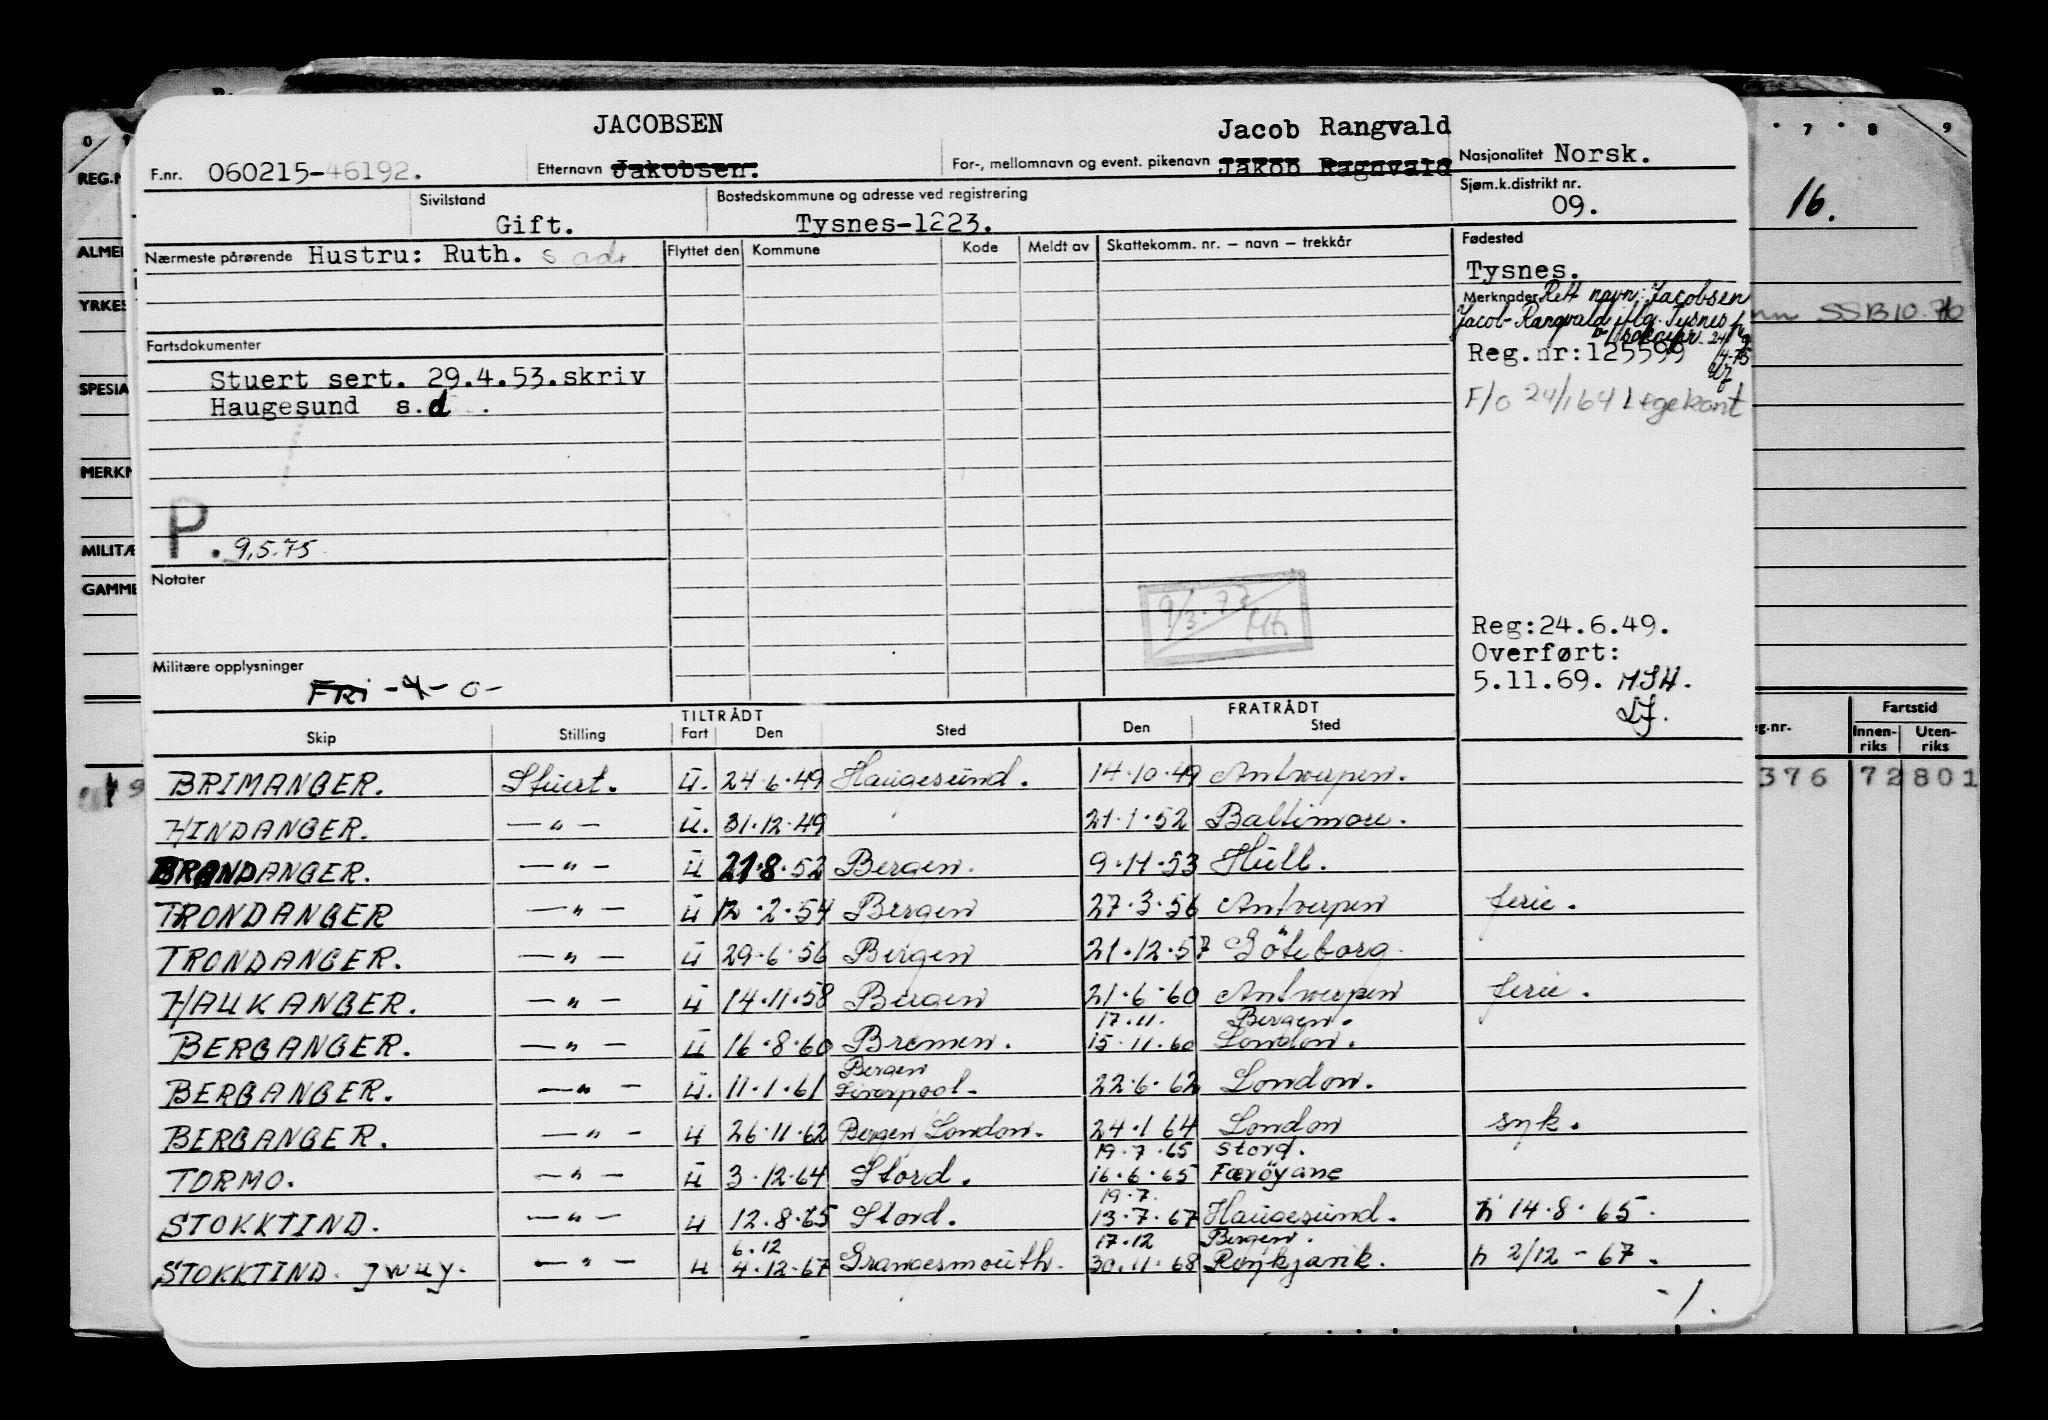 JACOBSEN Jacob Rangvald
F.nr. 060215-46192. Etternavn Jakobsen. For-, mellomnavn og event. pikenavn Jakob Ragnvald Nasjonalitet Norsk.
Sivilstand Gift. Bostedskommune og adresse ved registrering Tysnes-1223. Sjøm.k.distrikt nr. 09.
Nærmeste pårørende Hustru: Ruth. s. adr Flyttet den Kommune Kode Meldt av Skattekomm. nr. – navn – trekkår Fødested
Tysnes.
Merknader Rett navn: Jacobsen
Jacob Rangvald iflg. Tysnes
Reg.nr:125599
F/o 24/1 64 Legekont
Fartsdokumenter
Stuert sert. 29.4.53.skriv
Haugesund s.d
P. 9.5.75
Notater
9/3.72
Militære opplysninger
FRi -4-0-
Reg:24.6.49.
Overført:
5.11.69. MSH.
TILTRÅDT FRATRÅDT
Skip Stilling Fart Den Sted Den Sted
BRIMANGER. Stuert. u. 24.6.49 Haugesund. 14.10.49 Antwerpen.
HINDANGER. —"— u. 31.12.49 21.1.52 Baltimore.
BRANDANGER. —"— u 21.8.52 Bergen. 9.11.53 Hull.
TRONDANGER —"— u 12.2.54 Bergen 27.3.56 Antverpen ferie.
TRONDANGER. —"— u 29.6.56 Bergen 21.12.57 Göteborg.
HAUKANGER. —"— u 14.11.58 Bergen 21.6.60 Antwerpen ferie.
17.11. Bergen.
BERGANGER. —"— u 16.8.60 Bremen. 15.11.60 London.
Bergen
BERGANGER. —"— u. 11.1.61 Liverpool. 22.6.62 London.
BERGANGER. —"— u 26.11.62 Bergen London. 24.1 64 London syk.
19.7.65 Stord.
TORMO. —"— u 3.12.64 Stord. 16.6.65 Færøyane
19.7.
STOKKTIND. —"— u 12.8.65 Stord. 13.7.67 Haugesund. h 14.8.65.
6.12 17.12 Bergen.
STOKKTIND. JWUY. —"— u 4.12.67 Grangesmouth. 30.11.68 Reykjavik. h 2/12-67.
-1.
0
REG.N
ALMEN
YRKES
SPESIA
MERKN
MILITÆ
GAMME
7 8 9
16.
SSB 10.76
Fartstid
g.nr. Innen-riks Uten-riks
376 72 801